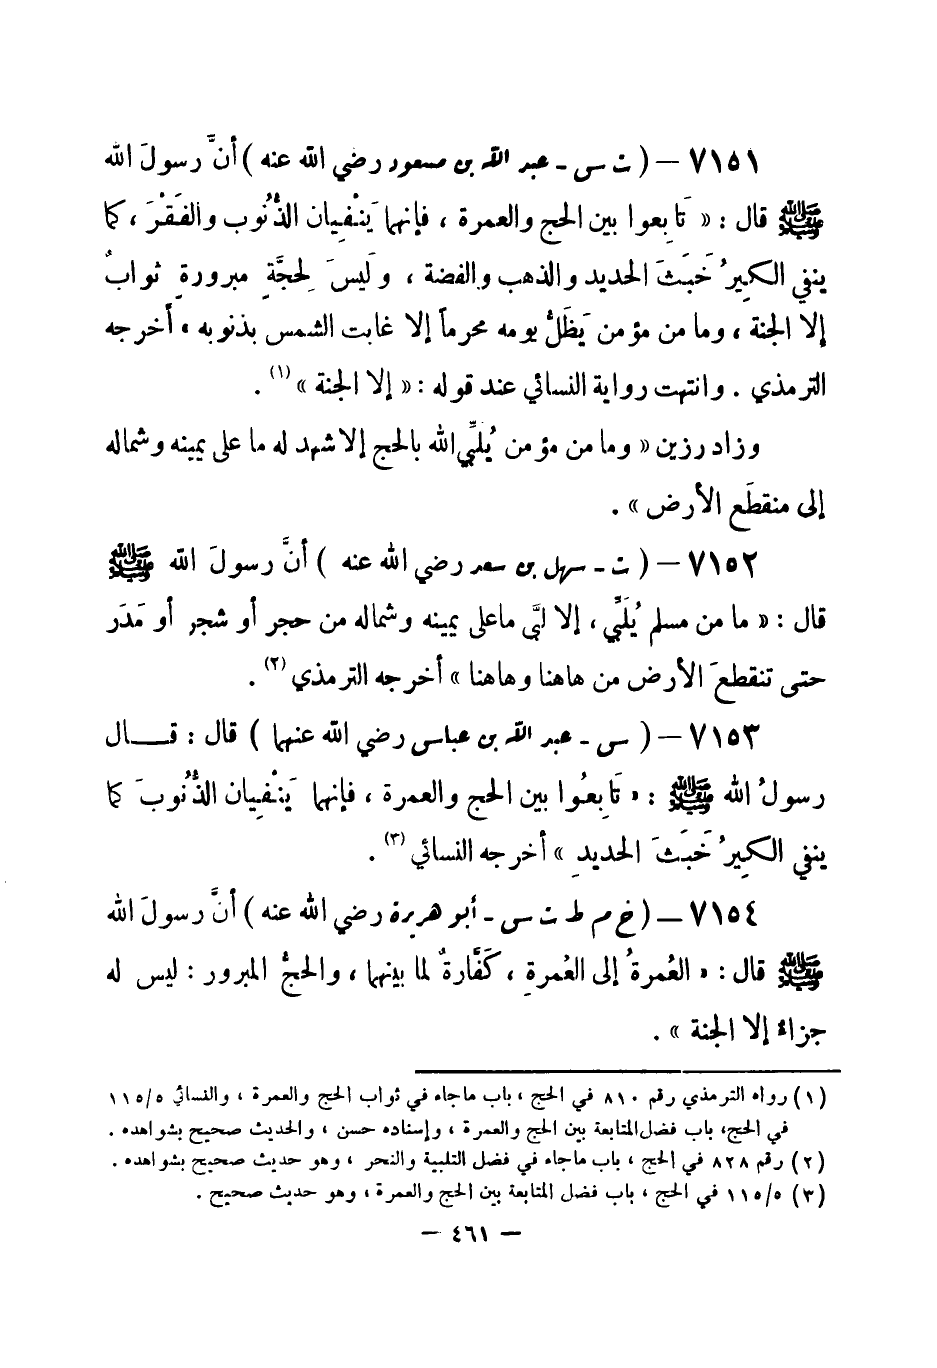 ٧١٥١ — ( ت س - عبد الله بن مسعود رضي الله عنه ) أنَّ رسولَ الله
ﷺ قال : « تَابِعوا بين الحج والعمرة ، فإنهما يَنْفِيان الذُّنُوب والفَقْرَ ، كما
ينفي الكِيرُ خَبَثَ الحديد والذهب والفضة ، ولَيسَ لِحجَّةٍ مبرورةٍ ثوابٌ
إلا الجنة ، وما من مؤمن يَظَلُّ يومه محرماً إلا غابت الشمس بذنوبه » أخرجه
الترمذي . وانتهت رواية النسائي عند قوله : « إلا الجنة » (١) .
وزاد رزين « وما من مؤمن يُلبِّي الله بالحج إلا شهد له ما على يمينه وشماله
إلى منقطَع الأرض » .
٧١٥٢ — ( ت - سهل بن سعد رضي الله عنه ) أنَّ رسولَ الله ﷺ
قال : « ما من مسلم يُلَبِّي ، إلا لبَّى ماعلى يمينه وشماله من حجر أو شجر أو مَدَر
حتى تنقطعَ الأرض من هاهنا وهاهنا » أخرجه الترمذي (٢) .
٧١٥٣ — ( س - عبد الله بن عباس رضي الله عنهما ) قال : قـــال
رسولُ الله ﷺ : « تَابِعُوا بين الحج والعمرة ، فإنهما يَنْفِيان الذُّنُوبَ كما
ينفي الكِيرُ خَبَثَ الحديدِ » أخرجه النسائي (٣) .
٧١٥٤ — ( خ م ط ت س - أبو هريرة رضي الله عنه ) أنَّ رسولَ الله
ﷺ قال : « العُمرةُ إلى العُمرةِ ، كَفَّارةٌ لما بينهما ، والحجُّ المبرور : ليس له
جزاءٌ إلا الجنة » .
(١) رواه الترمذي رقم ٨١٠ في الحج ، باب ماجاء في ثواب الحج والعمرة ، والنسائي ١١٥/٥
في الحج، باب فضل المتابعة بين الحج والعمرة ، وإسناده حسن ، والحديث صحيح بشواهده .
(٢) رقم ٨٢٨ في الحج ، باب ماجاء في فضل التلبية والنحر ، وهو حديث صحيح بشواهده .
(٣) ١١٥/٥ في الحج ، باب فضل المتابعة بين الحج والعمرة ، وهو حديث صحيح .
— ٤٦١ —